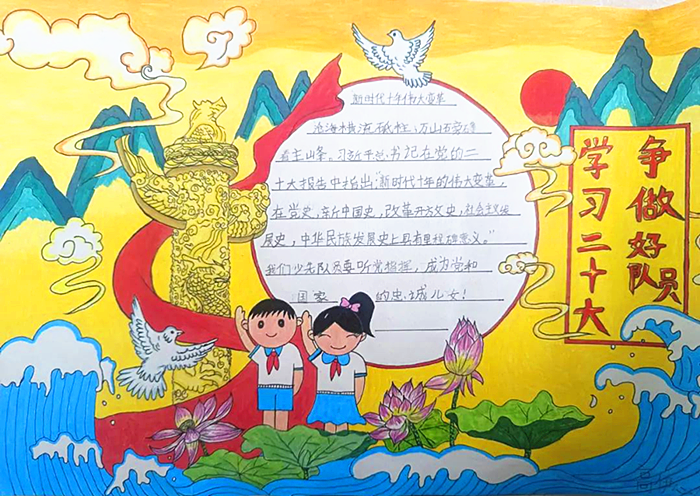 新时代十年伟大变革
沧海横流砥柱,万山磅礴
看主山峰。习近平总书记在党的二
十大报告中指出:"新时代十年的伟大变革,
在党史,新中国史,改革开放史,社会主义发
展史,中华民族发展史上具有里程碑意义。"
我们少先队员要听党指挥,成为党和
国家的忠诚儿女!
争做好队员
学习二十大